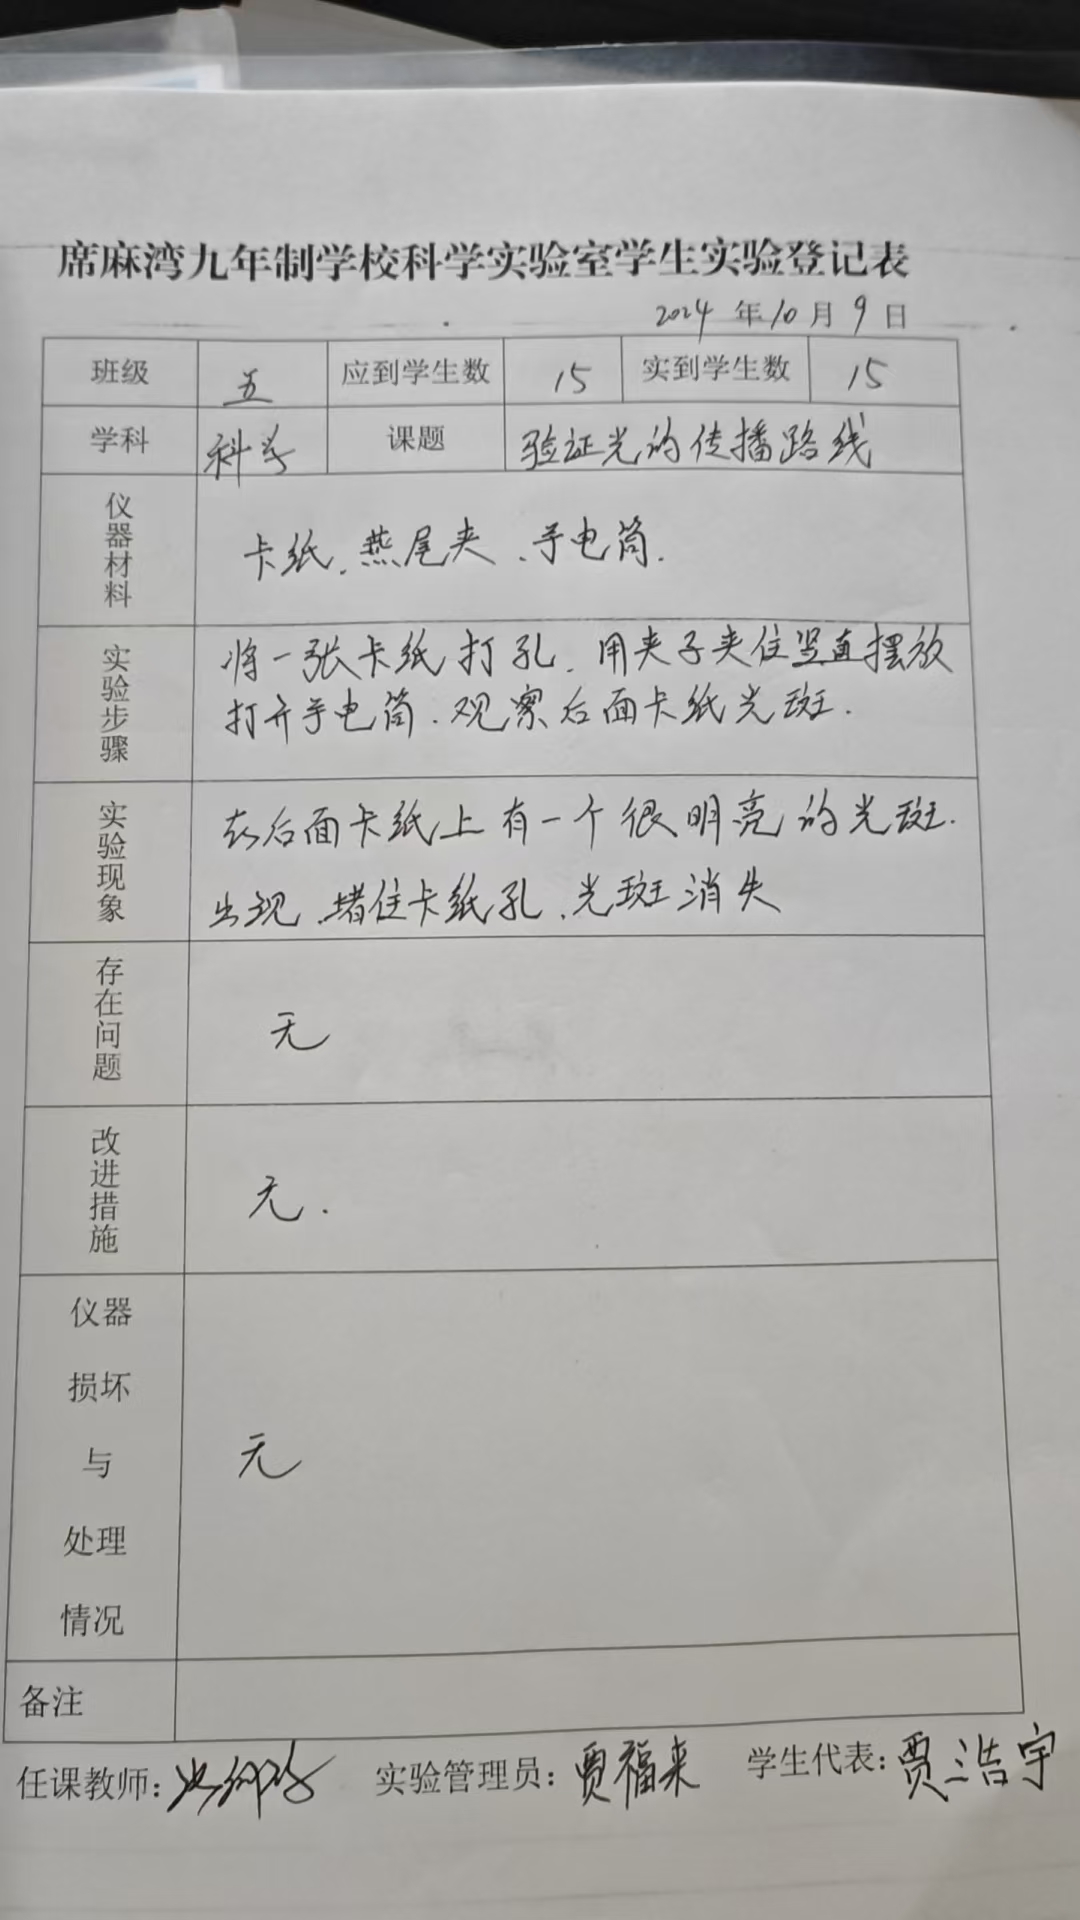 席麻湾九年制学校科学实验室学生实验登记表
2024 年 10 月 9 日
班级 五 应到学生数 15 实到学生数 15
学科 科学 课题 验证光的传播路线
仪器材料 卡纸、燕尾夹、手电筒.
实验步骤 将一张卡纸打孔、用夹子夹住竖直摆放
打开手电筒、观察后面卡纸光斑.
实验现象 在后面卡纸上有一个很明亮的光斑.
出现、堵住卡纸孔、光斑消失
存在问题 无
改进措施 无.
仪器
损坏
与
处理
情况
无
备注
任课教师: 实验管理员:贾福来 学生代表:贾浩宇